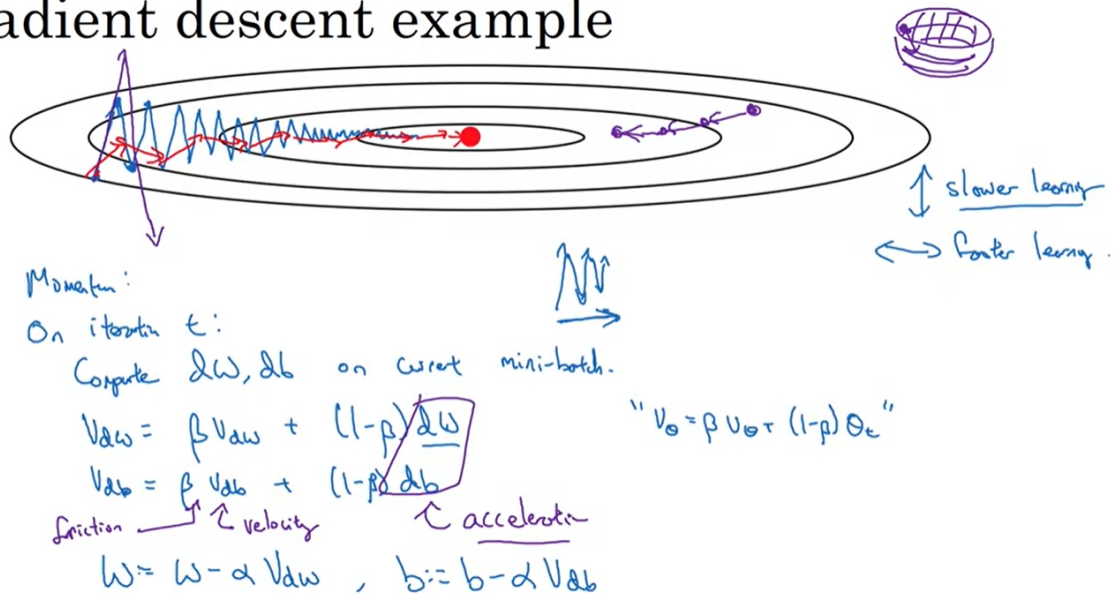 adient descent example
slower learning
faster learning.
Momentum:
On iteration t:
Compute dW, db on current mini-batch.
Vdw = β Vdw + (1-β) dW
"Vθ = β Vθ + (1-β) θt"
Vdb = β Vdb + (1-β) db
friction velocity acceleration
W := W - α Vdw , b := b - α Vdb